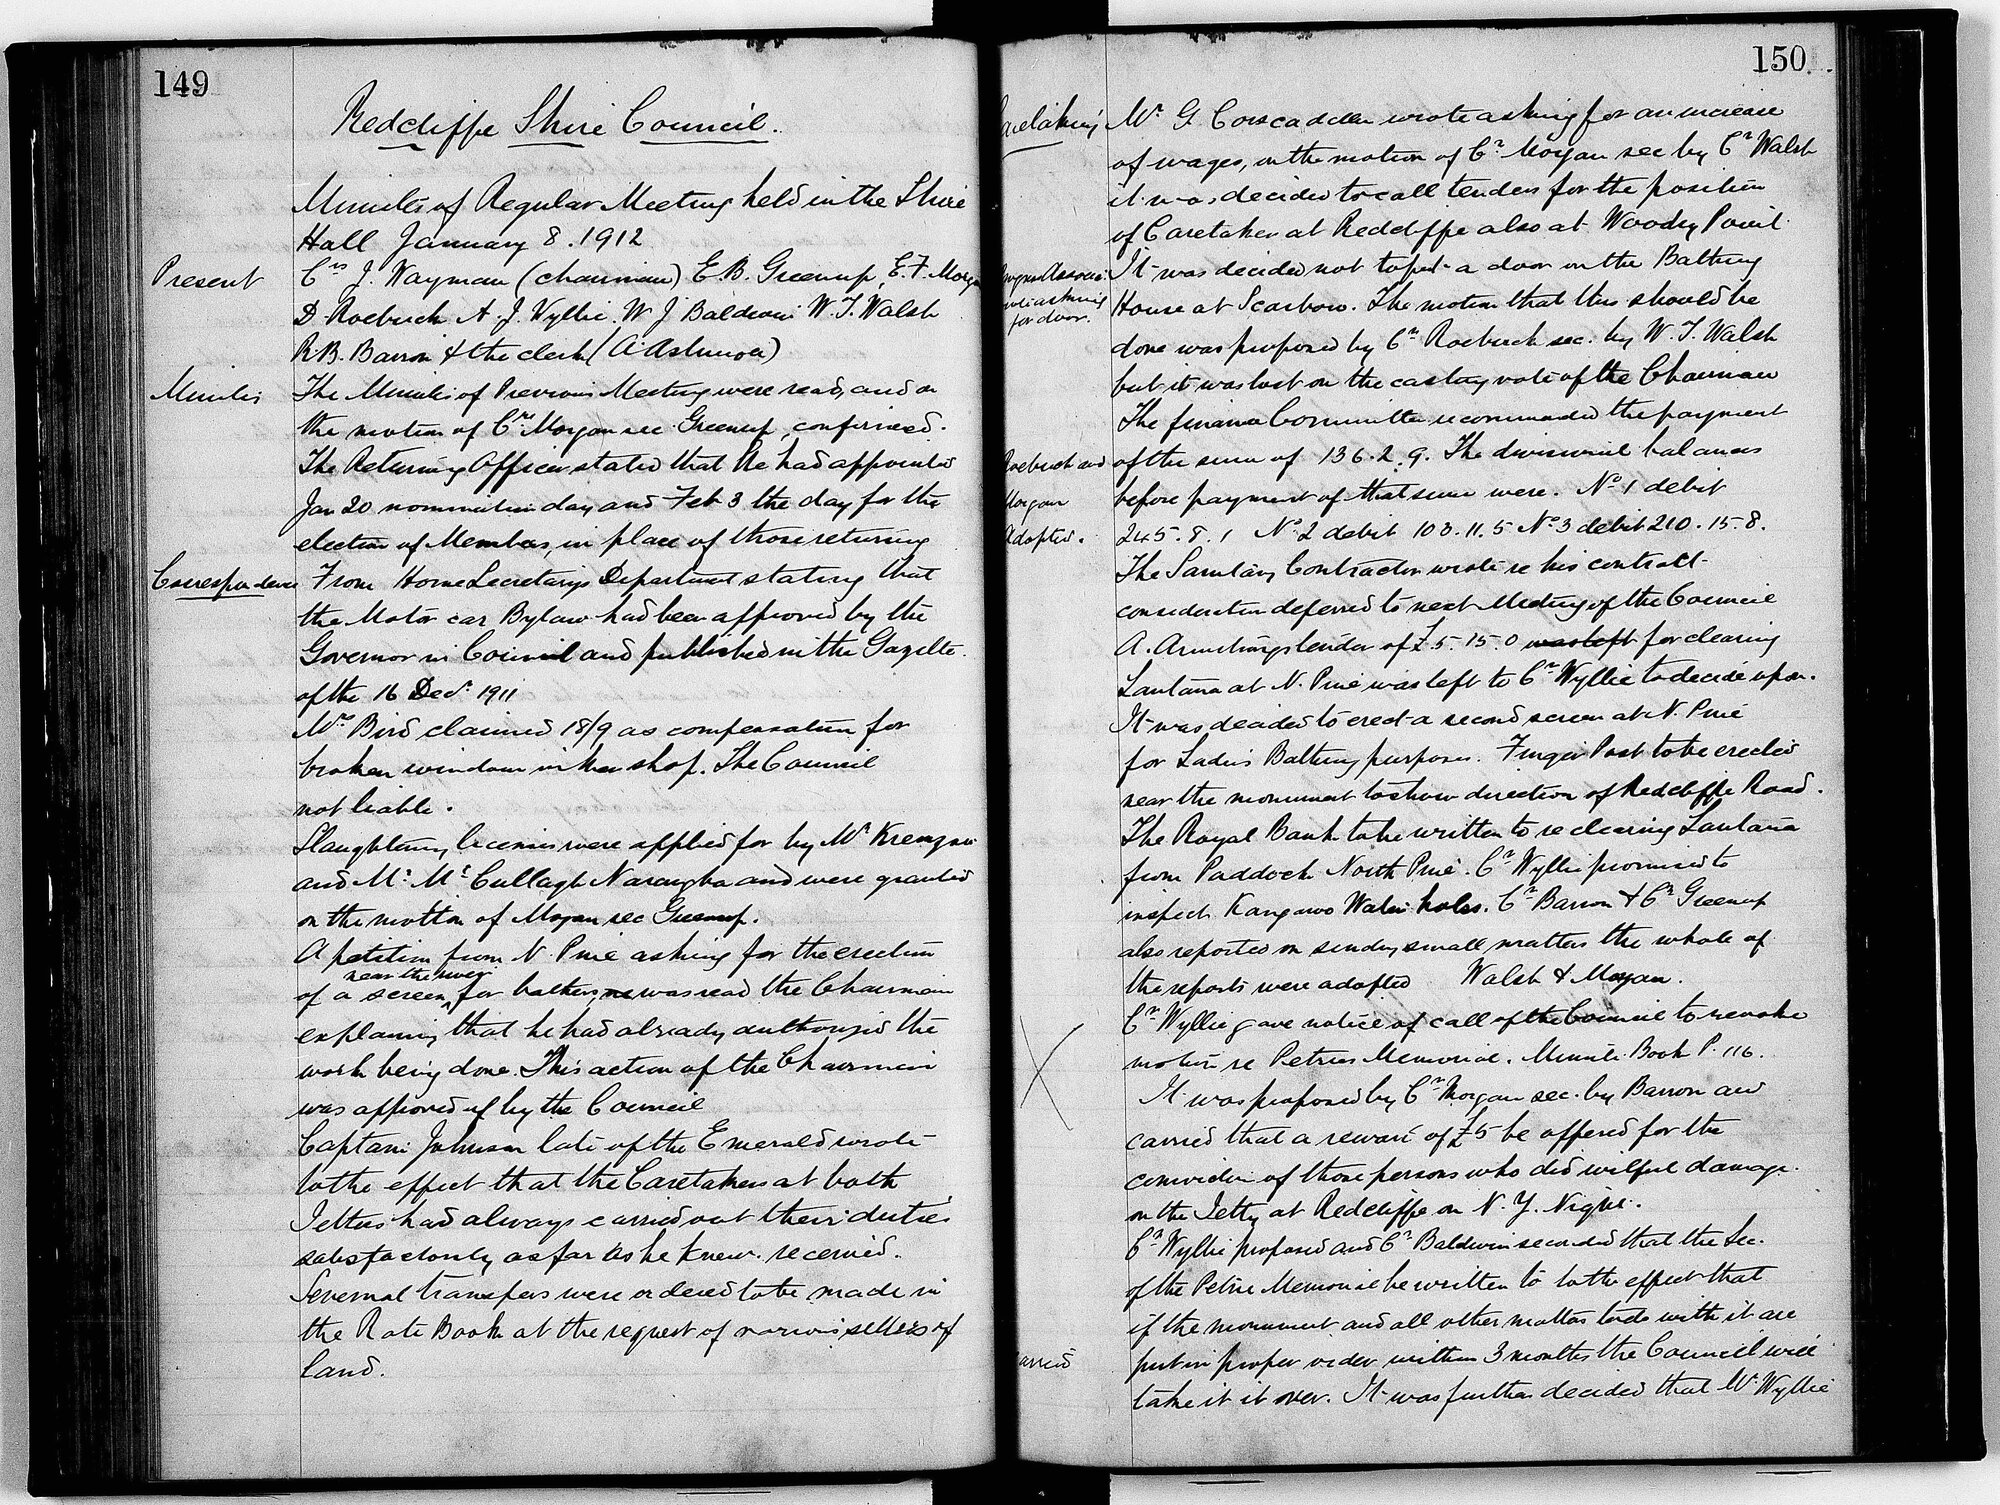 149
Redcliffe Shire Council.
Minutes of Regular Meeting held in the Shire
Hall January 8. 1912
Present
Crs J. Wayman (chairman) E. B. Greenup, E. F. Morgan
D. Roebuck A. J. Wyllie. W. J. Baldwin W. T. Walsh
R. B. Barron & the clerk (A.
Minutes
The Minutes of Previous Meeting were read, and on
the motion of Cr. Morgan sec Greenup, confirmed.
The Returning Officer stated that he had appointed
Jan 20 nomination day and Feb 3 the day for the
election of Members, in place of those returning
Correspondence
From Home Secretarys Department stating that
the Motor car Bylaw had been approved by the
Governor in Council and published in the Gazette
of the 16 Decr. 1911
Mrs Bird claimed 18/9 as compensation for
broken window in her shop. The Council
not liable.
Slaughtering licenses were applied for by Mr
and Mr. McCullagh Narangba and were granted
on the motion of Morgan sec Greenup.
A petition from N Pine asking for the erection
near the river
of a screen, for bathers, was read the Chairman
explaining that he had already authorized the
work being done. This action of the Chairman
was approved of by the Council
Captain Johnson late of the Emerald wrote
to the effect that the Caretakers at both
Jetties had always carried out their duties
satisfactorily as far as he knew. received.
Several transfers were ordered to be made in
the Rate Book at the request of various sellers of
land.
150
Caretaking
Mr G. Corscadden wrote asking for an increase
of wages, on the motion of Cr. Morgan sec by Cr Walsh
it was decided to call tenders for the position
of Caretaker at Redcliffe also at Woody Point
Progress Associ
wrote asking
for door.
It was decided not to put a door on the Bathing
House at Scarboro. The motion that this should be
done was proposed by Cr Roebuck sec. by W. T. Walsh
but it was lost on the casting vote of the Chairman
The finance Committee recommended the payment
Roebuck and
Morgan
Adopted.
of the sum of 136. 2. 9. The divisional balances
before payment of that sum were. No 1 debit
245. 8. 1 No 2 debit 103. 11. 5 No 3 debit 210. 15. 8.
The Sanitary Contractor wrote re his contract
consideration deferred to next Meeting of the Council
A. Armstrongs tender of £5. 15. 0 was left for clearing
Lantana at N. Pine was left to Cr Wyllie to decide upon.
It was decided to erect a second screen at N. Pine
for Ladies Bathing purposes. Finger Post to be erected
near the monument to show direction of Redcliffe Road.
The Royal Bank to be written to re clearing Lantana
from Paddock North Pine. Cr Wyllie promised to
inspect Kangaroo Water holes. Cr Barron & Cr Greenup
also reported on sundry small matters the whole of
the reports were adopted Walsh & Morgan.
Cr Wyllie gave notice of call of the Council to revoke
motion re Petries Memorial. Minute Book P. 116.
It was proposed by Cr Morgan sec. by Barron and
carried that a reward of £5 be offered for the
conviction of those persons who did wilful damage
on the Jetty at Redcliffe on N. Y. Night.
Cr Wyllie proposed and Cr Baldwin seconded that the Sec.
of the Petrie Memorial be written to to the effect that
if the monument and all other matters to do with it are
Carried
put in proper order within 3 months the Council will
take it it over. It was further decided that Mr Wyllie